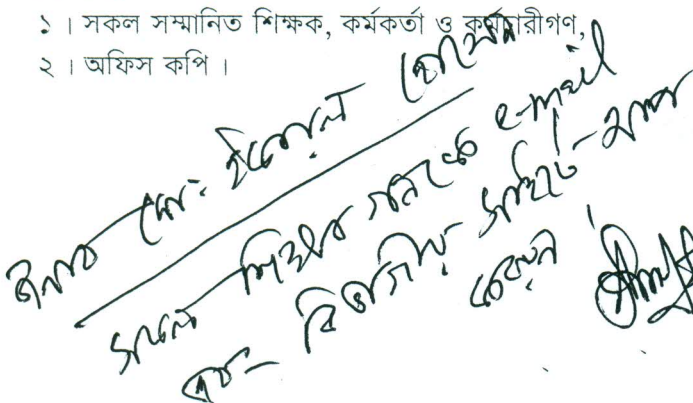 ১। সকল সম্মানিত শিক্ষক, কর্মকর্তা ও কর্মচারীগণ,
২। অফিস কপি।
জনাব মো: হোসেন
সকল শিক্ষক গনকে e-mail
বিভাগীয় সাইটে
করুন